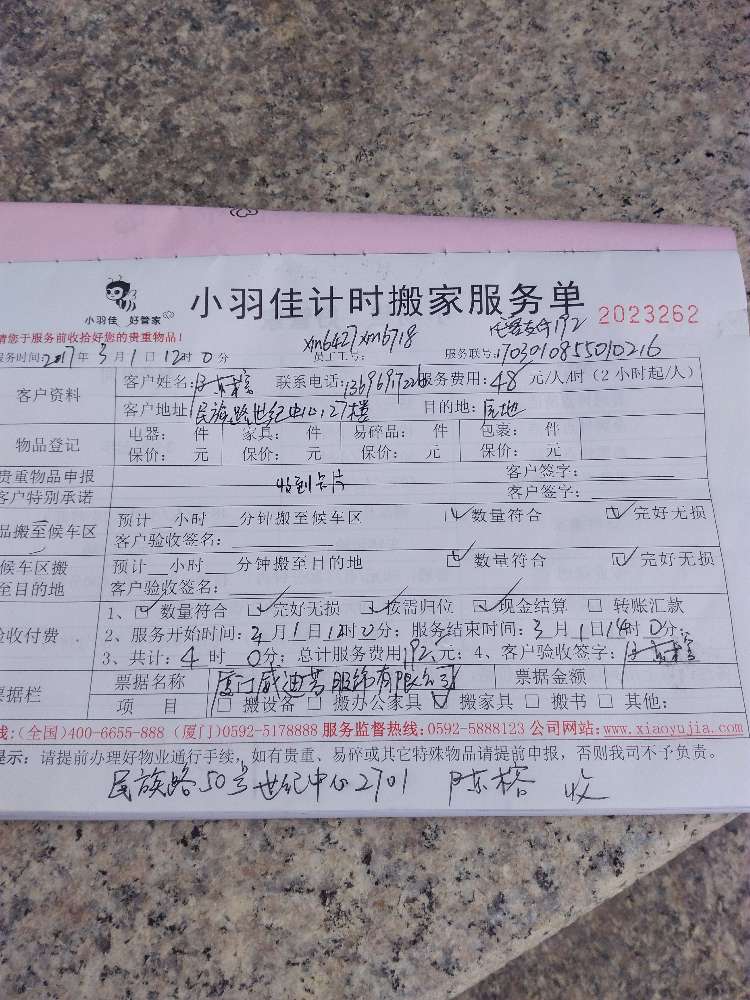 小羽佳 好管家
小羽佳计时搬家服务单
2023262
请您于服务前收拾好您的贵重物品!
xm6427 xm6718
192
服务时间:2017年3月1日12时0分 员工工号: 服务联号:1703010855010216
客户资料 客户姓名: 联系电话: 服务费用:48元/人/时(2小时起/人)
客户地址 民族路世纪中心27楼 目的地:
物品登记 电器: 件 家具: 件 易碎品: 件 包裹: 件
保价: 元 保价: 元 保价: 元 保价: 元
贵重物品申报 客户签字:
收到卡片
客户特别承诺 客户签字:
品搬至候车区 预计 小时 分钟搬至候车区 数量符合 完好无损
客户验收签名:
候车区搬 预计 小时 分钟搬至目的地 数量符合 完好无损
至目的地 客户验收签名:
验收付费 1、 数量符合 完好无损 按需归位 现金结算 转账汇款
2、服务开始时间:3月1日12时0分;服务结束时间:3月1日14时0分;
3、共计:4时0分;总计服务费用192元;4、客户验收签字:
票据栏 票据名称 厦门威迪芳服饰有限公司 票据金额
项 目 搬设备 搬办公家具 搬家具 搬书 其他:
线:(全国)400-6655-888 (厦门)0592-5178888 服务监督热线:0592-5888123 公司网站:www.xiaoyujia.com
提示:请提前办理好物业通行手续,如有贵重、易碎或其它特殊物品请提前申报,否则我司不予负责。
民族路50号世纪中心2701 陈榕 收